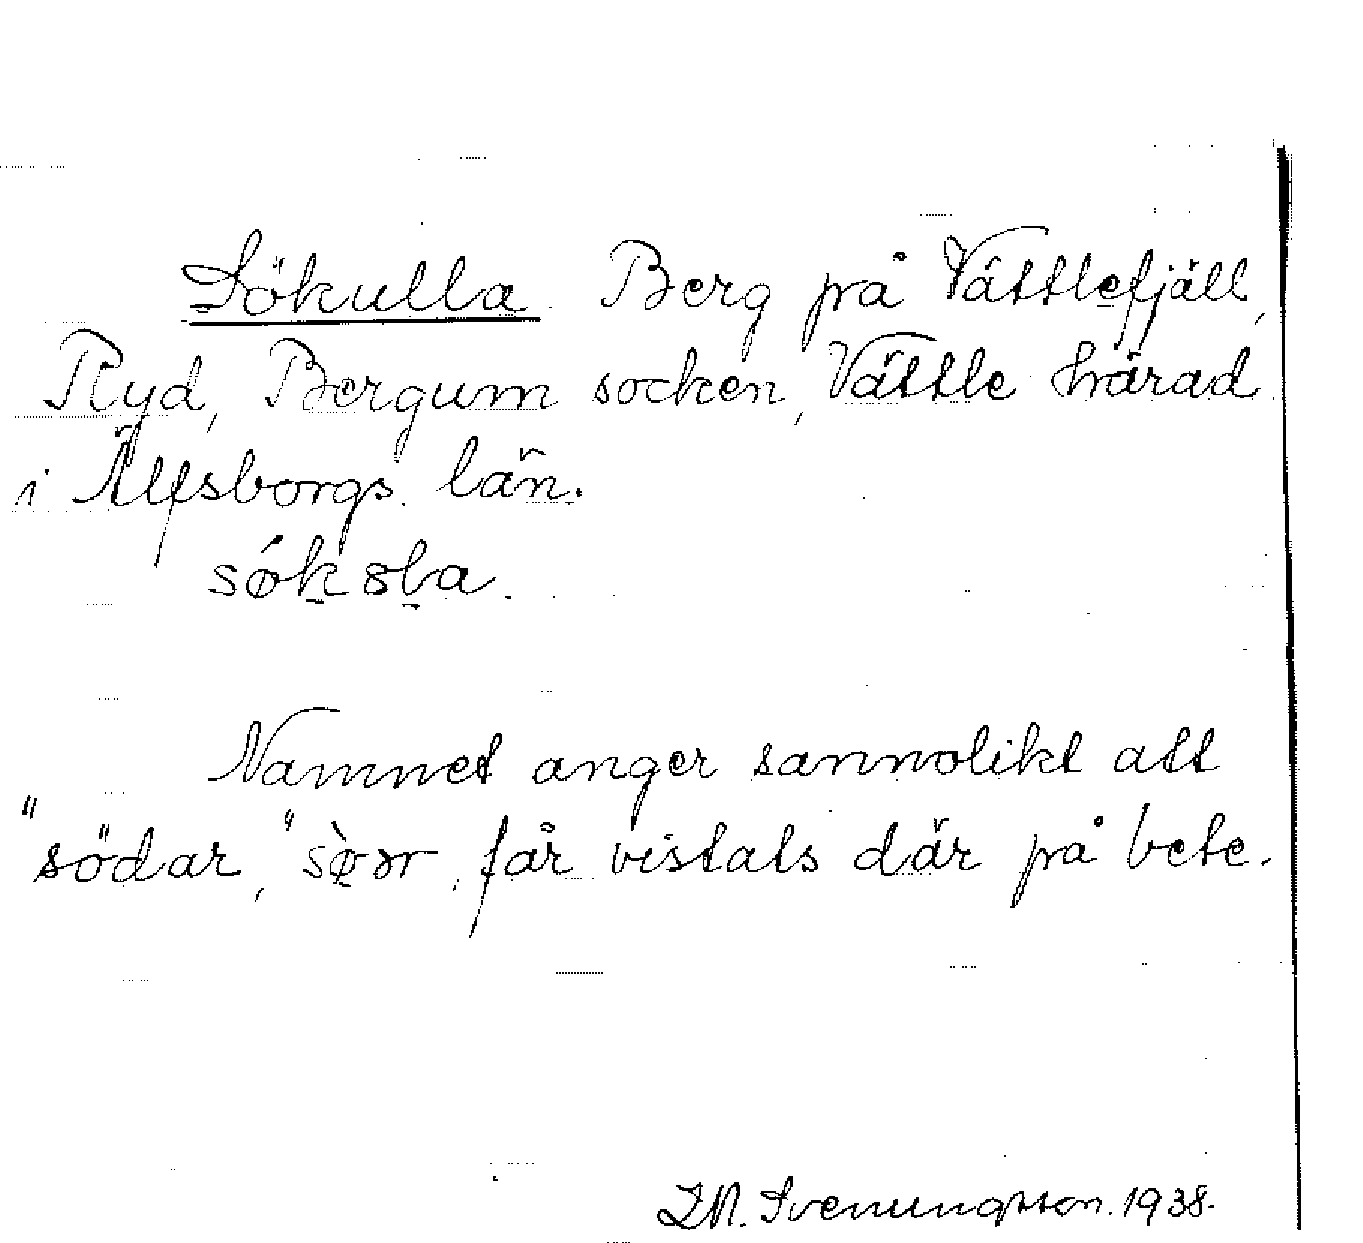 Sökulla. Berg på Vättlefjäll,
Ryd, Bergum socken, Vättle härad
i Älfsborgs län.
Namnet anger sannolikt att
"södar," sòↄr, får vistats där på bete.
Svenungsson. 1938.